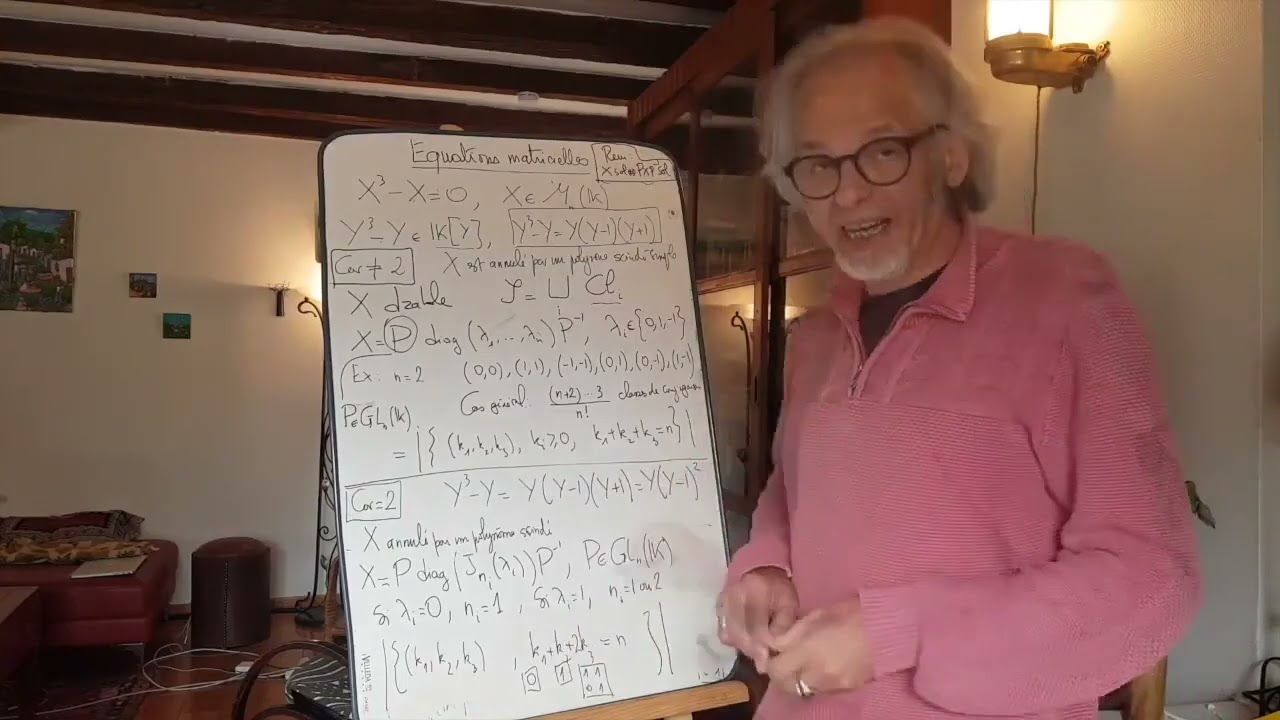 Equations matricielles
Rem:
X sol ⇔ PXP⁻¹ sol
X³-X=0, X∈ M_n(𝕜)
Y³-Y ∈ 𝕜[Y], Y³-Y=Y(Y-1)(Y+1)
Car ≠ 2 X est annulé par un polynôme scindé simple
X dzable 𝒮 = ⊔ Cl_i
X=P diag(λ₁,...,λₙ)P⁻¹, λᵢ∈{0,1,-1}
Ex: n=2 (0,0),(1,1),(-1,-1),(0,1),(0,-1),(1,-1)
Cas général: (n+2)...3 / n! classes de conjugaison
P∈GLₙ(𝕜)
= |{(k₁,k₂,k₃), kᵢ≥0, k₁+k₂+k₃=n}|
Car=2 Y³-Y = Y(Y-1)(Y+1)=Y(Y-1)²
X annulé par un polynôme scindé
X=P diag(J_{nᵢ}(λᵢ))P⁻¹, P∈GLₙ(𝕜)
Si λᵢ=0, nᵢ=1, Si λᵢ=1, nᵢ=1 ou 2
|{(k₁,k₂,k₃), k₁+k₂+2k₃=n}|
0 1 1 1
0 1
VELLEDA